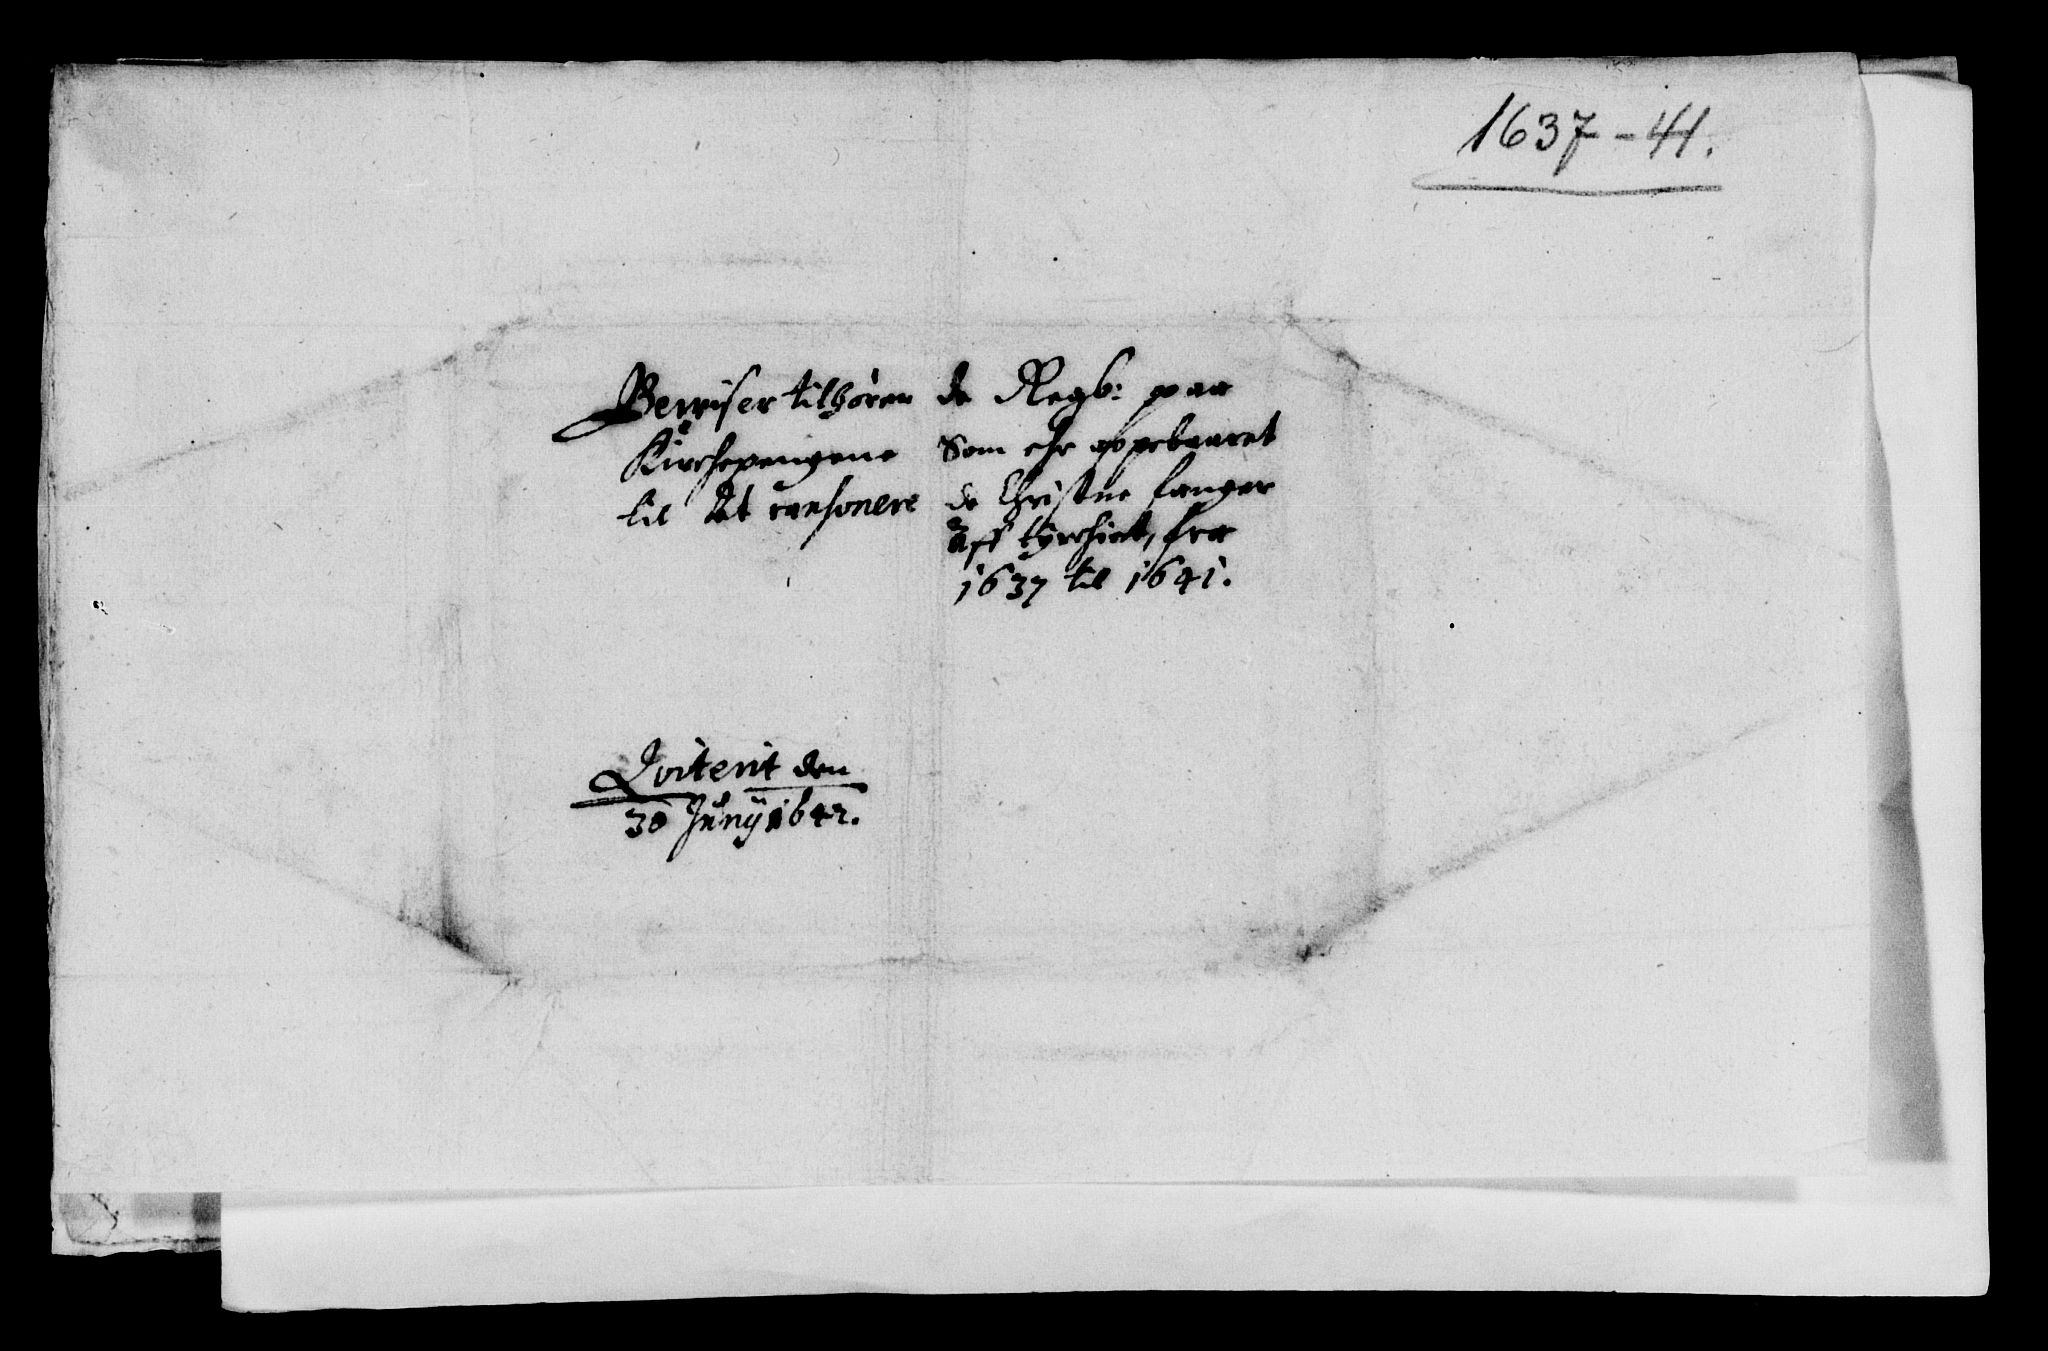 1637-41.
Bewiser tilhören de Regb: paa
Kirchepengene Som ehr oppebaaret
til det ransonere de Christne fanger
Aff tyrchiet, fra
1637 til 1641.
Qviterit den
30 Junÿ 1642.